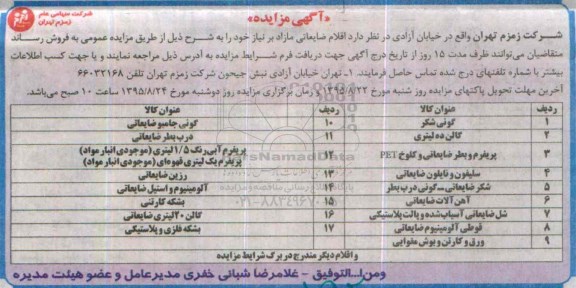 شرکت سهامی عام
زمزم تهران
«آگهی مزایده»
شرکت زمزم تهران واقع در خیابان آزادی در نظر دارد اقلام ضایعاتی مازاد بر نیاز خود را به شرح ذیل از طریق مزایده عمومی به فروش رساند
متقاضیان می‌توانند ظرف مدت ۱۵ روز از تاریخ درج آگهی جهت دریافت فرم شرایط مزایده به آدرس ذیل مراجعه نمایند و یا جهت کسب اطلاعات
بیشتر با شماره تلفنهای درج شده تماس حاصل فرمایند. ۱ـ تهران خیابان آزادی نبش جیحون شرکت زمزم تهران تلفن ۶۶۰۳۲۱۶۸
آخرین مهلت تحویل پاکتهای مزایده روز شنبه مورخ ۱۳۹۵/۸/۲۲ و زمان برگزاری مزایده روز دوشنبه مورخ ۱۳۹۵/۸/۲۴ ساعت ۱۰ صبح می‌باشد.
ردیف عنوان کالا ردیف عنوان کالا
۱ گونی شکر ۱۰ گونی جامبو ضایعاتی
۲ گالن ده لیتری ۱۱ درب بطر ضایعاتی
۳ پریفرم و بطر ضایعاتی و کلوخ PET ۱۲ پریفرم آبی رنگ ۱/۵ لیتری (موجودی انبار مواد)
پریفرم یک لیتری قهوه‌ای (موجودی انبار مواد)
۴ سلیفون و نایلون ضایعاتی ۱۳ رزین ضایعاتی
۵ شکر ضایعاتی ـ گونی درب بطر ۱۴ آلومینیوم و استیل ضایعاتی
۶ آهن آلات ضایعاتی ۱۵ بشکه کارتنی
۷ شل ضایعاتی آسیاب شده و پالت پلاستیکی ۱۶ گالن ۲۰ لیتری ضایعاتی
۸ قوطی آلومینیوم ضایعاتی ۱۷ بشکه فلزی و پلاستیکی
۹ ورق و کارتن و بوش مقوایی
و اقلام دیگر مندرج در برگ شرایط مزایده
ومن ا... التوفیق - غلامرضا شبانی خفری مدیرعامل و عضو هیئت مدیره